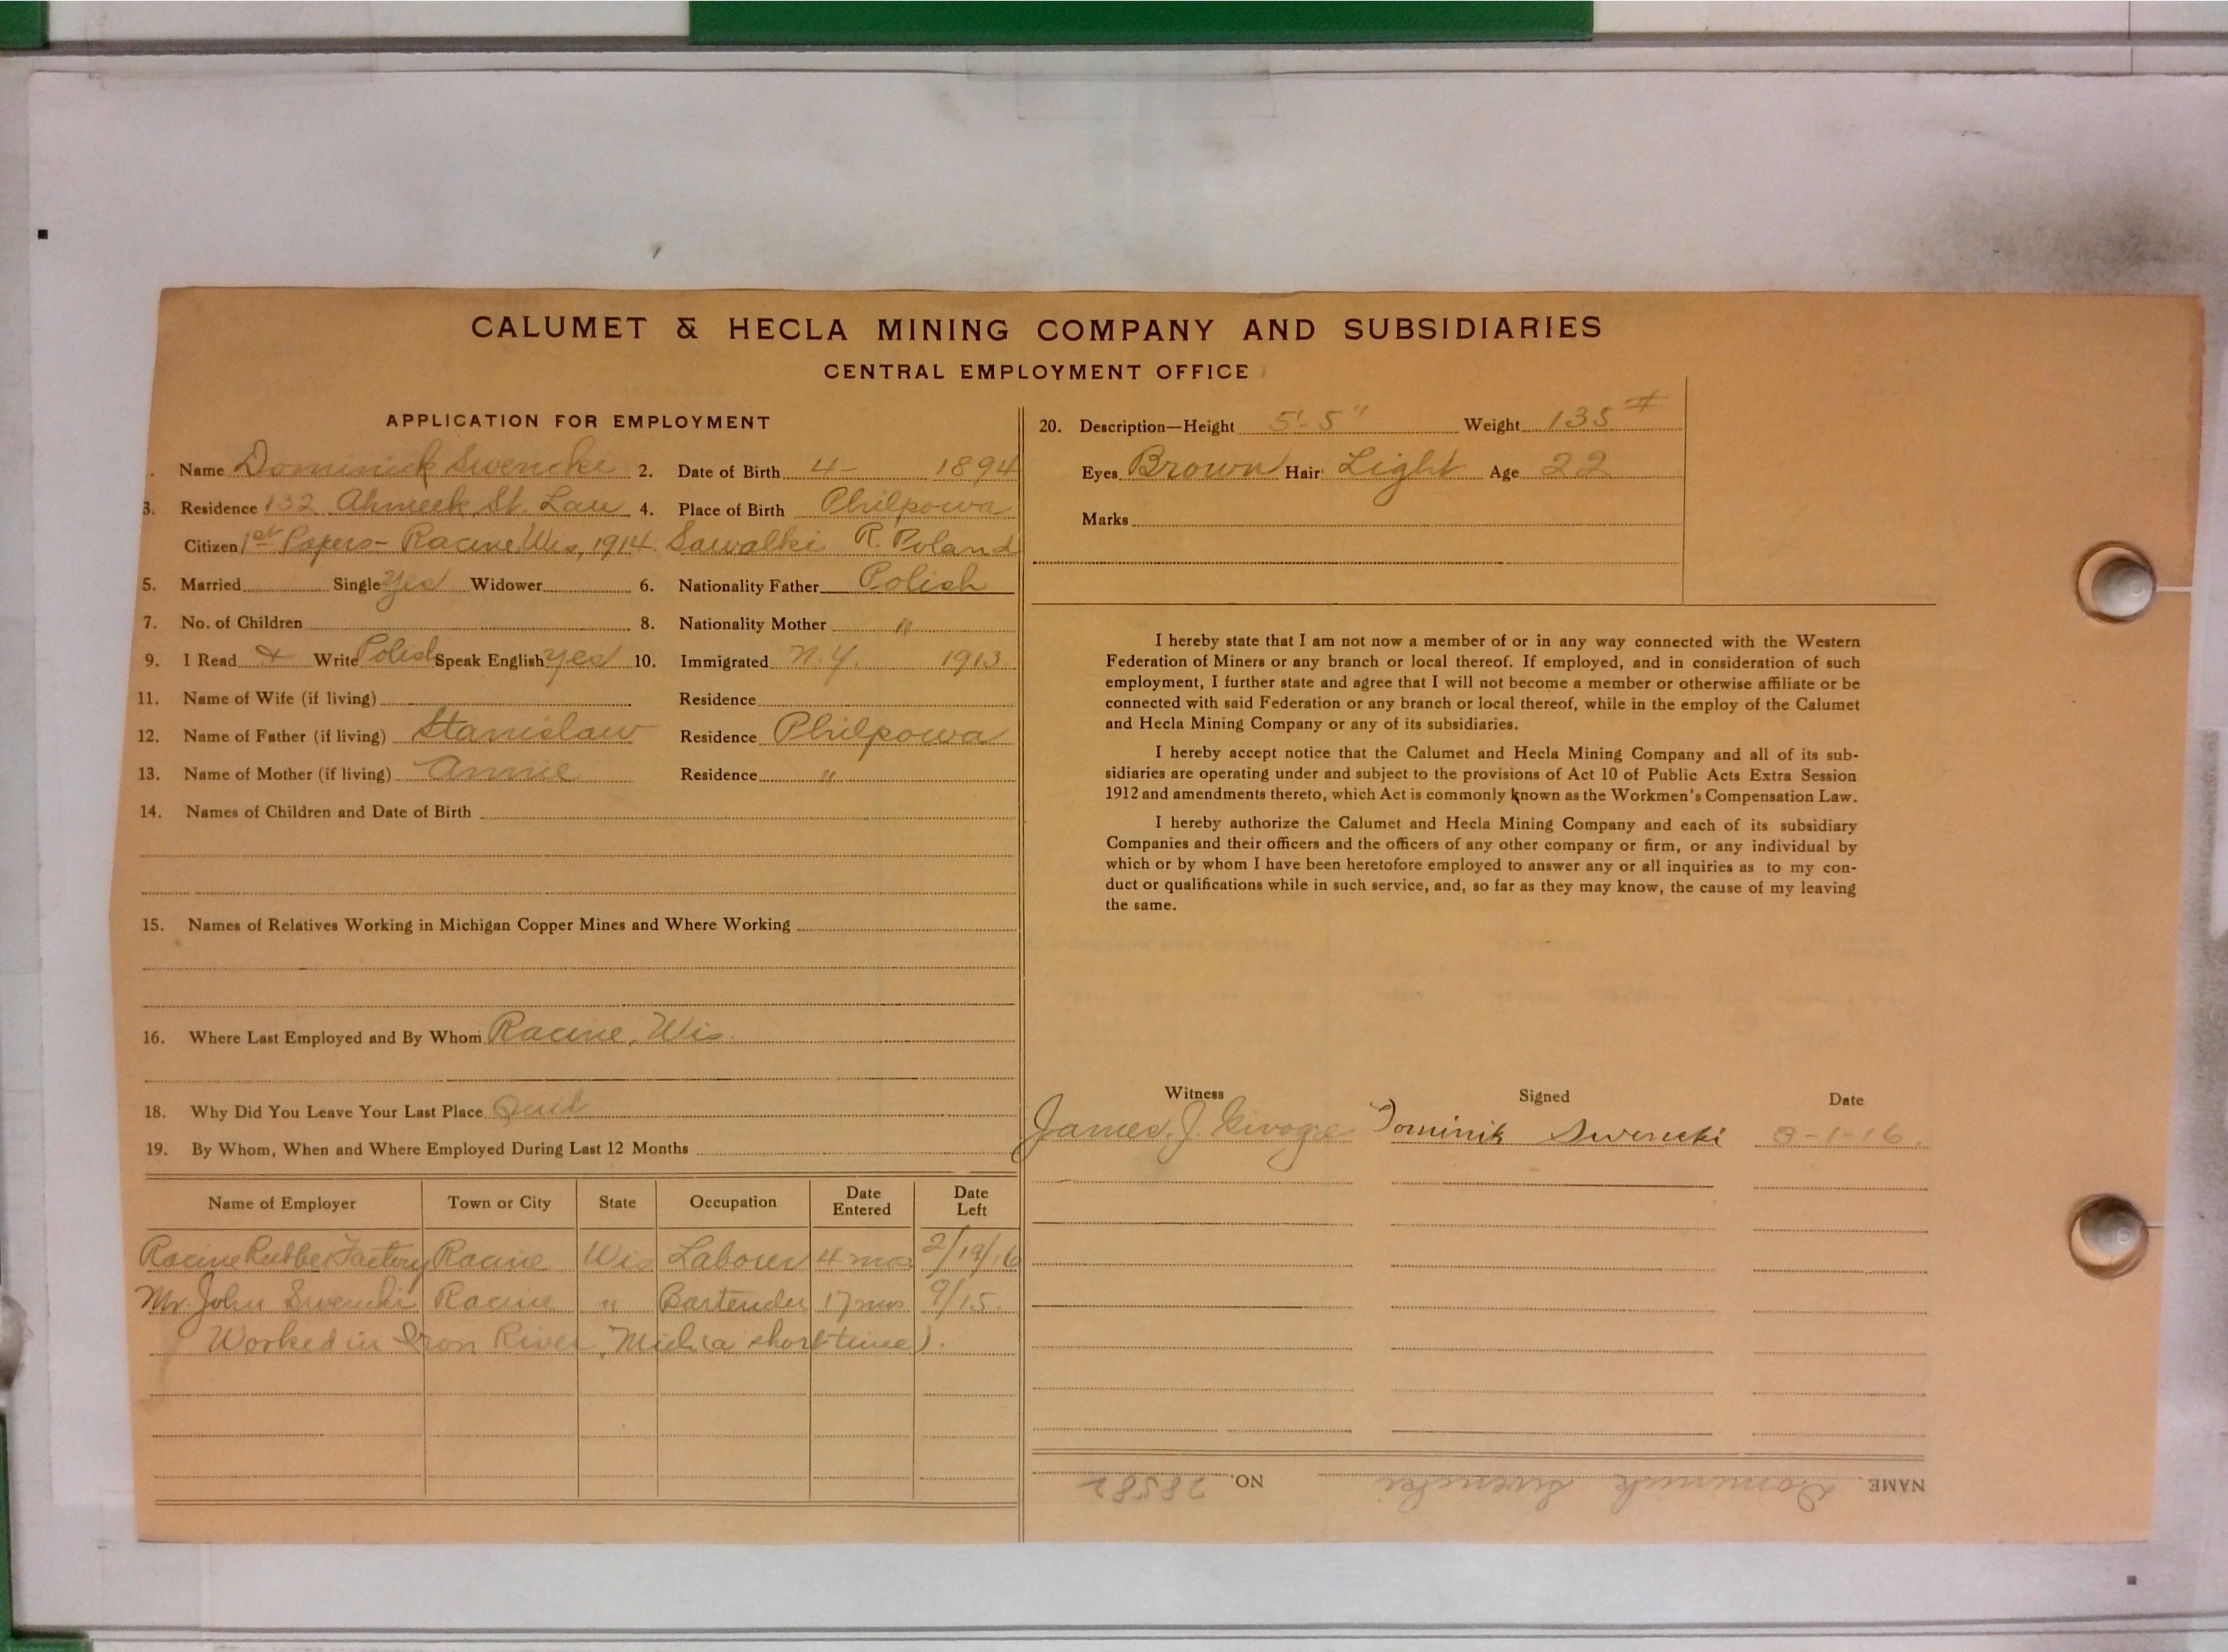 CALUMET & HECLA MINING COMPANY AND SUBSIDIARIES
CENTRAL EMPLOYMENT OFFICE
APPLICATION FOR EMPLOYMENT
Name Dominick Swencki 2. Date of Birth 4- 1894
3. Residence 132 Ahmeek St. Lau 4. Place of Birth Philpowa
Citizen 1st Papers - Racine, Wis, 1914. Sawalki R. Poland
5. Married Single yes Widower 6. Nationality Father Polish
7. No. of Children 8. Nationality Mother "
9. I Read & Write Polish Speak English yes 10. Immigrated N.Y. 1913.
11. Name of Wife (if living) Residence
12. Name of Father (if living) Stanislaw Residence Philpowa
13. Name of Mother (if living) Annie Residence "
14. Names of Children and Date of Birth
15. Names of Relatives Working in Michigan Copper Mines and Where Working
16. Where Last Employed and By Whom Racine, Wis.
18. Why Did You Leave Your Last Place Quit
19. By Whom, When and Where Employed During Last 12 Months
Name of Employer Town or City State Occupation Date Entered Date Left
Racine Rubber Factory Racine Wis Laborer 4 mos 2/19/16
Mr. John Swencki Racine " Bartender 17 mos 9/15.
Worked in Iron River, Mich (a short time).
20. Description—Height 5'-5" Weight 135 #
Eyes Brown Hair Light Age 22
Marks
I hereby state that I am not now a member of or in any way connected with the Western
Federation of Miners or any branch or local thereof. If employed, and in consideration of such
employment, I further state and agree that I will not become a member or otherwise affiliate or be
connected with said Federation or any branch or local thereof, while in the employ of the Calumet
and Hecla Mining Company or any of its subsidiaries.
I hereby accept notice that the Calumet and Hecla Mining Company and all of its sub-
sidiaries are operating under and subject to the provisions of Act 10 of Public Acts Extra Session
1912 and amendments thereto, which Act is commonly known as the Workmen's Compensation Law.
I hereby authorize the Calumet and Hecla Mining Company and each of its subsidiary
Companies and their officers and the officers of any other company or firm, or any individual by
which or by whom I have been heretofore employed to answer any or all inquiries as to my con-
duct or qualifications while in such service, and, so far as they may know, the cause of my leaving
the same.
Witness Signed Date
James. J. Dominik Swencki 3-1-16.
NAME Dominick Swencki NO. 28582